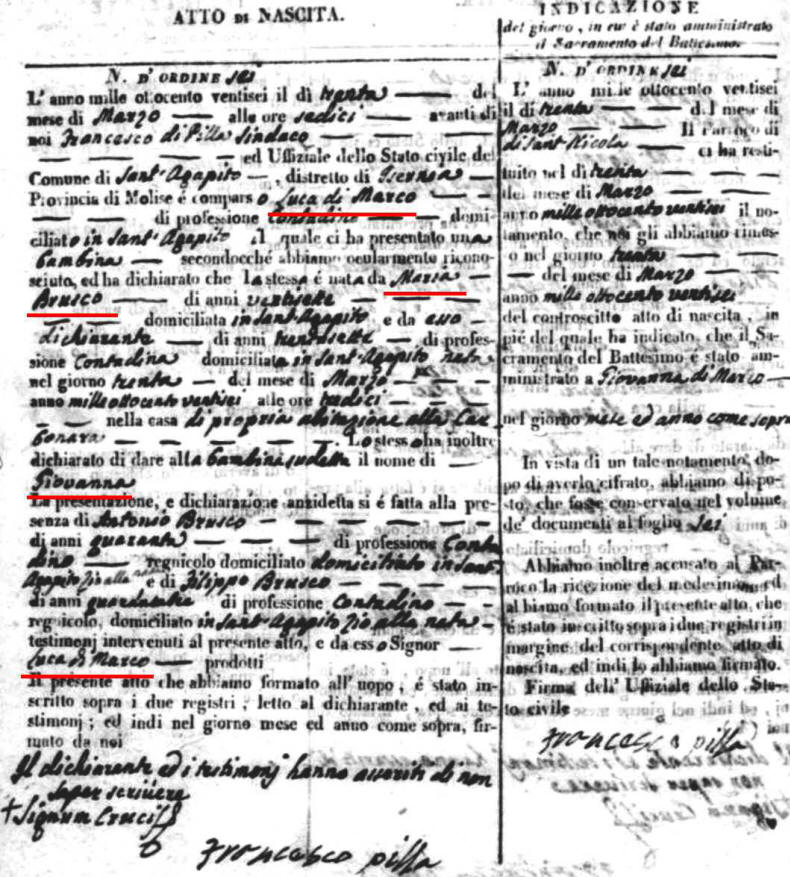 ATTO DI NASCITA.
N. D'ORDINE sei
L'anno mille ottocento ventisei il dì trenta del
mese di Marzo alle ore sedici avanti di
noi Francesco di Pilla Sindaco
ed Uffiziale dello Stato civile del
Comune di Sant'Agapito, distretto di Isernia
Provincia di Molise è comparso Luca di Marco
di professione Contadino domi-
ciliato in Sant'Agapito il quale ci ha presentato una
bambina secondocchè abbiamo ocularmente ricono-
sciuto, ed ha dichiarato che la stessa è nata da Maria
Brusco di anni ventisette
domiciliata in Sant'Agapito e da esso
dichiarante di anni trentasette di profes-
sione Contadina domiciliata in Sant'Agapito nata
nel giorno trenta del mese di Marzo
anno mille ottocento ventisei alle ore tredici
nella casa di propria abitazione alla Car
bonara Lo stesso ha inoltre
dichiarato di dare alla bambina sudetta il nome di
Giovanna
La presentazione, e dichiarazione anzidetta si è fatta alla pre-
senza di Antonio Brusco
di anni quaranta di professione Conta
dino regnicolo domiciliato domiciliato in Sant'
Agapito zio alla nata e di Filippo Brusco
di anni di professione Contadino
regnicolo, domiciliato in Sant'Agapito zio alla nata
testimonj intervenuti al presente atto, e da esso Signor
Luca di Marco prodotti
Il presente atto che abbiamo formato all'uopo, è stato in-
scritto sopra i due registri, letto al dichiarante, ed ai te-
stimonj; ed indi nel giorno mese ed anno come sopra, fir-
mato da noi
Il dichiarante ed i testimonj hanno asseriti di non
saper scrivere
+ Signum Crucis
Francesco pilla
INDICAZIONE
del giorno, in cui è stato amministrato
il Sacramento del Batesimo.
N. D'ORDINE sei
L'anno mille ottocento ventisei
il dì trenta del mese di
Marzo Il Parroco di
di Sant Nicola ci ha resti-
tuito nel dì trenta
del mese di Marzo
anno mille ottocento ventisei il no-
tamento, che noi gli abbiamo rimes-
so nel giorno trenta
del mese di Marzo
anno mille ottocento ventisei
del controscritto atto di nascita, in
piè del quale ha indicato, che il Sa-
cramento del Battesimo è stato am-
ministrato a Giovanna di Marco
nel giorno mese ed anno come sopra
In vista di un tale notamento, do-
po di averlo cifrato, abbiamo dispo-
sto, che fosse conservato nel volume
de' documenti al foglio sei
Abbiamo inoltre accusato al Par-
roco la ricezione del medesimo, ed
abbiamo formato il presente atto, che
è stato inscritto sopra i due registri in
margine del corrispondente atto di
nascita, ed indi lo abbiamo firmato.
Firma dell'Uffiziale dello Sta-
to civile
Francesco pilla